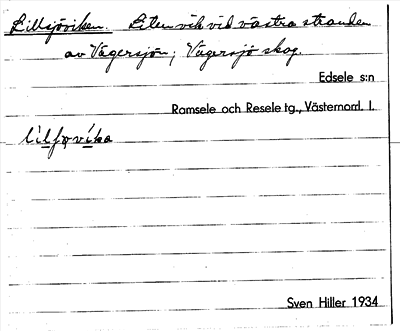 Lillsjöviken. Liten vik vid västra stranden
av Vägersjön; Vägersjö skog.
Edsele s:n
Ramsele och Resele tg., Västernorrl. l.
Sven Hiller 1934